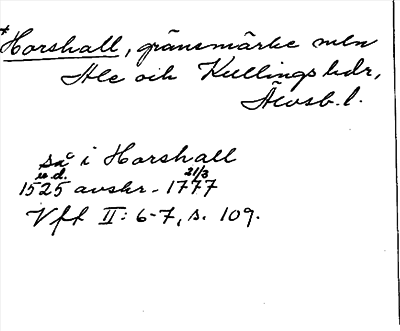 *Horshall, gränsmärke mln
Ale och Kullings hdr,
Älvsb. l.
så i Horshall
u.d.
1525 avskr. 21/3 1777
Vff II: 6-7, s. 109.